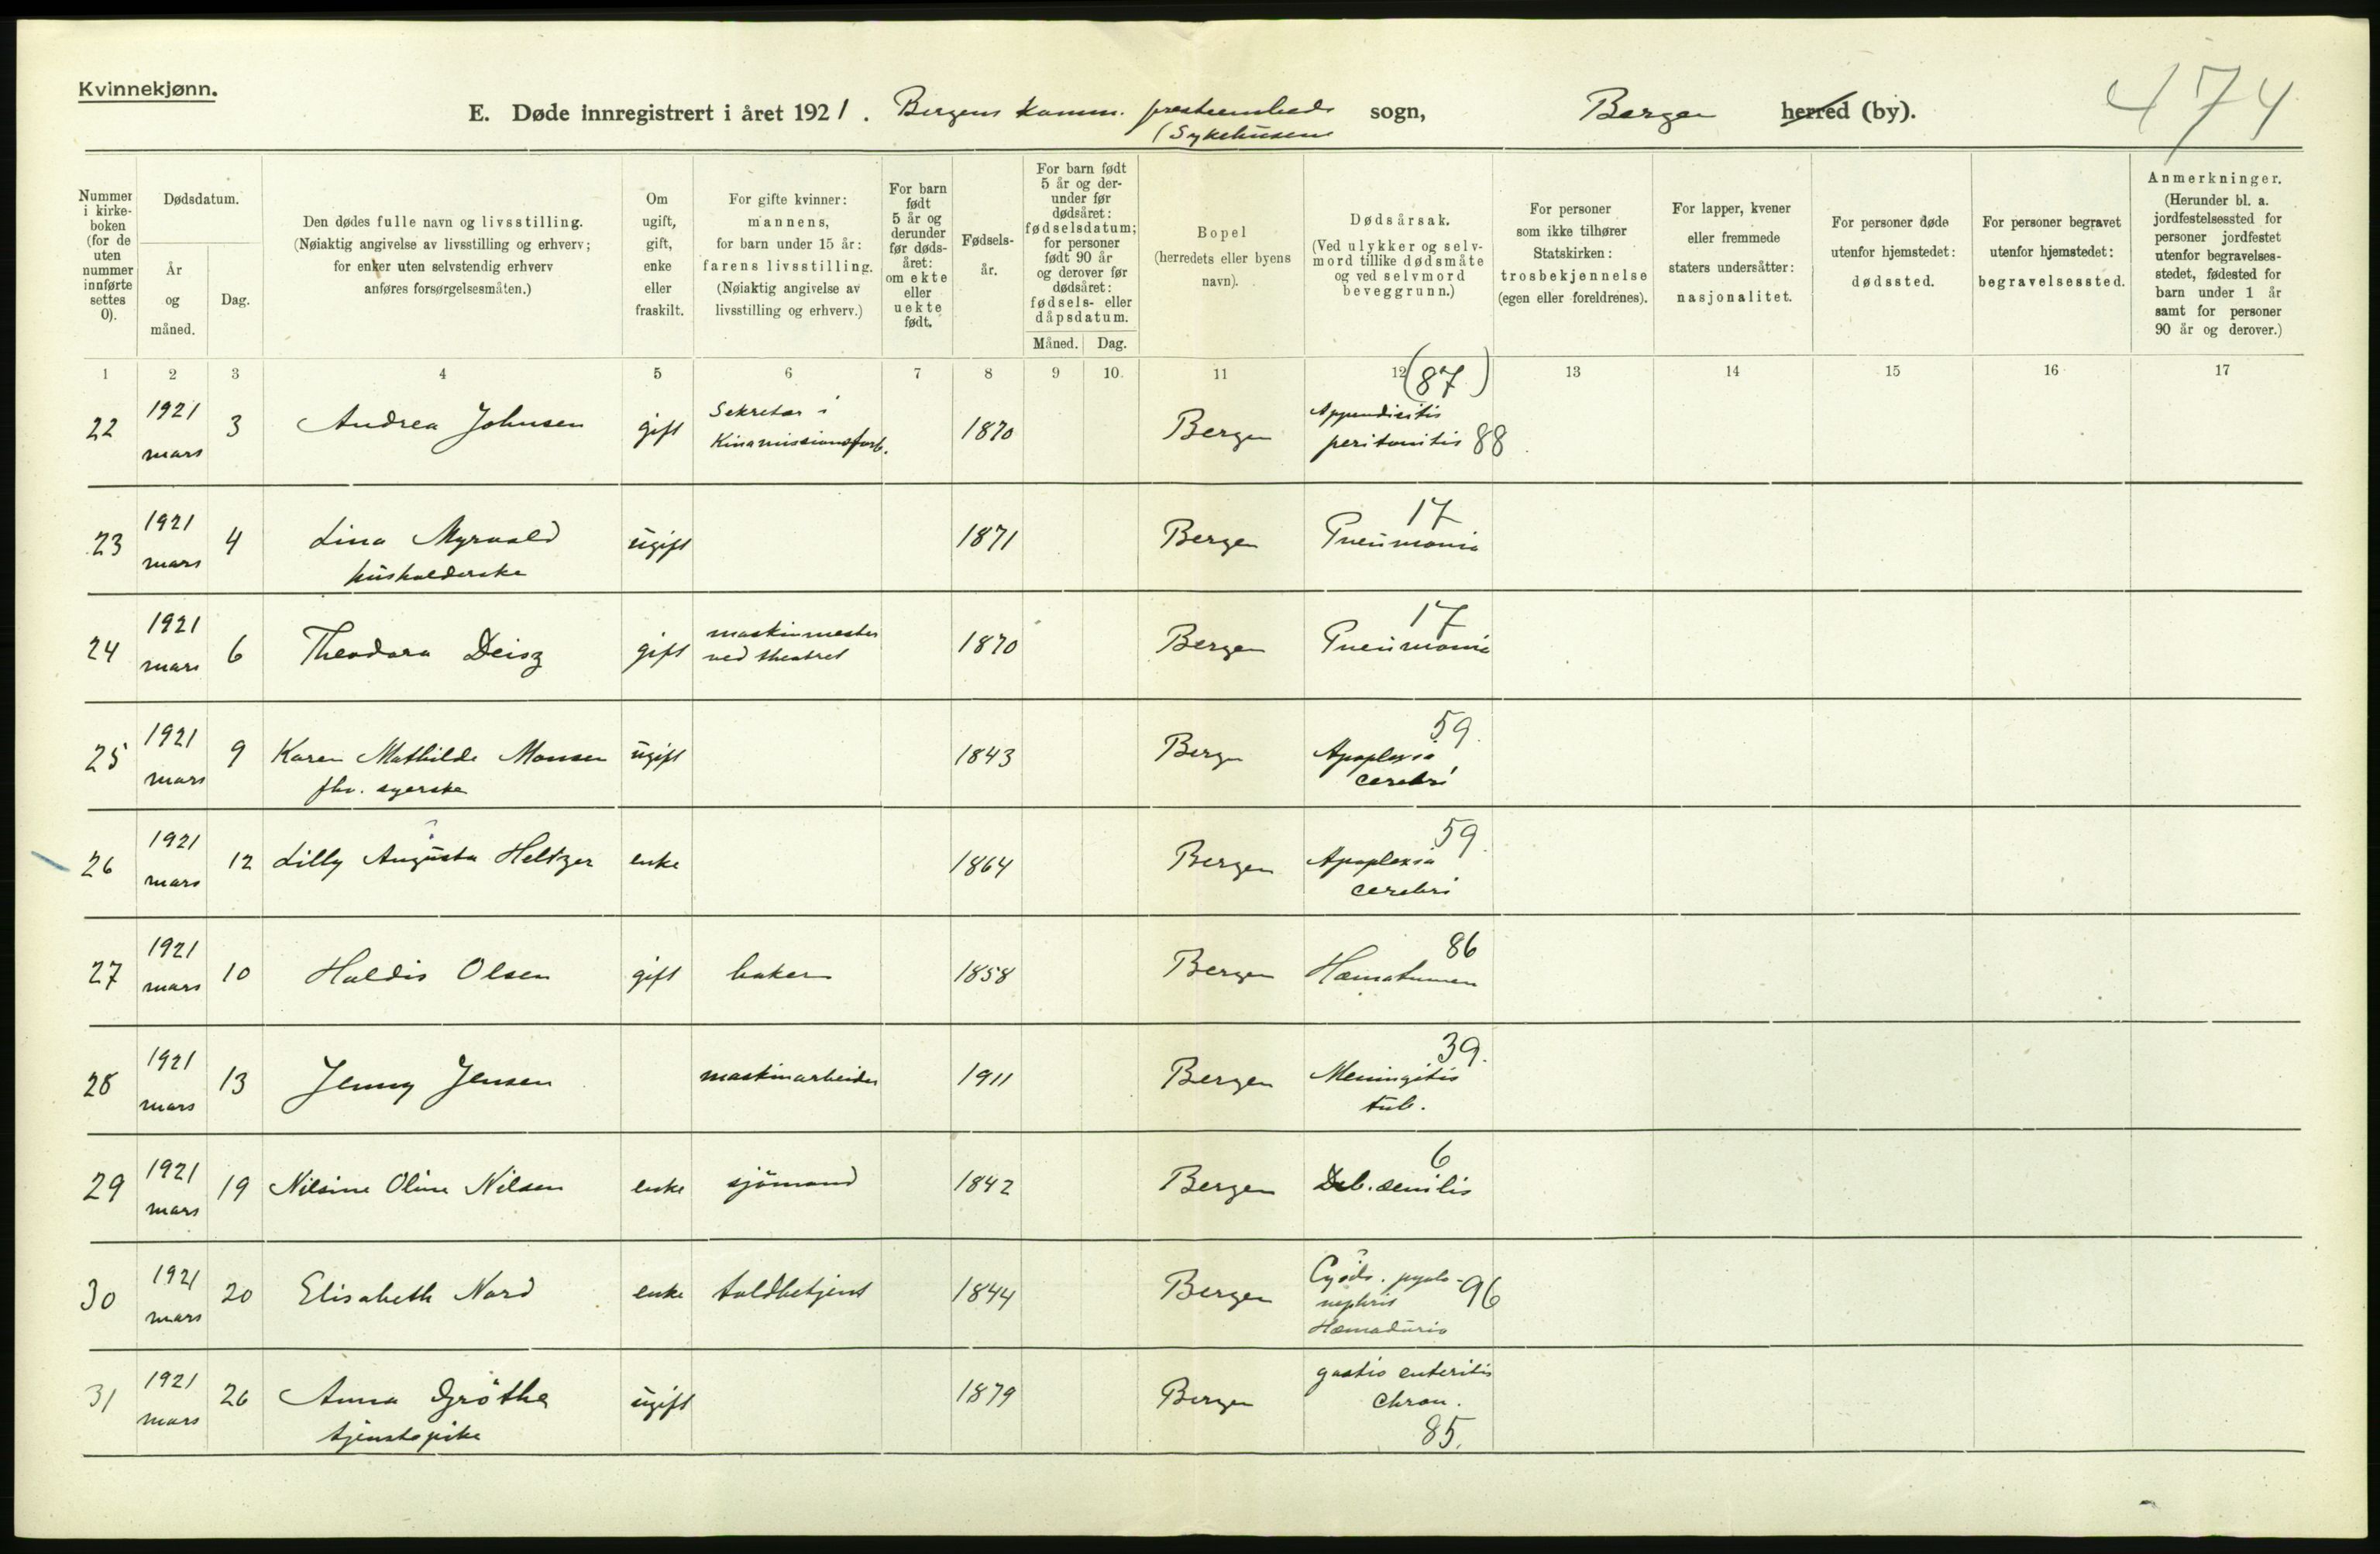 Kvinnekjønn.
474
E. Døde innregistrert i året 1921. Bergens komm. presteembede sogn, Bergen herred (by).
(Sykehusene
Nummer i kirkeboken (for de uten nummer innførte settes 0).
Dødsdatum.
År og måned.
Dag.
Den dødes fulle navn og livsstilling.
(Nøiaktig angivelse av livsstilling og erhverv;
for enker uten selvstendig erhverv
anføres forsørgelsesmåten.)
Om ugift, gift, enke eller fraskilt.
For gifte kvinner:
mannens,
for barn under 15 år:
farens livsstilling.
(Nøiaktig angivelse av
livsstilling og erhverv.)
For barn født 5 år og derunder før dødsåret: om ekte eller uekte født.
Fødselsår.
For barn født 5 år og derunder før dødsåret: fødselsdatum; for personer født 90 år og derover før dødsåret: fødsels- eller dåpsdatum.
Måned.
Dag.
Bopel
(herredets eller byens
navn).
Dødsårsak.
(Ved ulykker og selvmord tillike dødsmåte og ved selvmord beveggrunn.)
For personer
som ikke tilhører
Statskirken:
trosbekjennelse
(egen eller foreldrenes).
For lapper, kvener
eller fremmede
staters undersåtter:
nasjonalitet.
For personer døde
utenfor hjemstedet:
dødssted.
For personer begravet
utenfor hjemstedet:
begravelsessted.
Anmerkninger.
(Herunder bl. a.
jordfestelsessted for
personer jordfestet
utenfor begravelses-
stedet, fødested for
barn under 1 år
samt for personer
90 år og derover.)
1 2 3 4 5 6 7 8 9 10 11 12 13 14 15 16 17
(87)
22 1921 mars 3 Andrea Johnsen gift Sekretær i Kinamissionsforb. 1870 Bergen Appendicitis peritonitis 88
23 1921 mars 4 Lina Myrvold husholderske ugift 1871 Bergen 17 Pneumonia
24 1921 mars 6 Theodora Deisz gift maskinmester ved theatret 1870 Bergen 17 Pneumonia
25 1921 mars 9 Karen Mathilde Monsen fhv. syerske ugift 1843 Bergen 59. Apoplexia cerebri
26 1921 mars 12 Lilly Augusta Heltzer enke 1864 Bergen 59. Apoplexia cerebri
27 1921 mars 10 Haldis Olsen gift baker 1858 Bergen 86
28 1921 mars 13 Jenny Jensen maskinarbeider 1911 Bergen 39. Meningitis tub.
29 1921 mars 19 Nilsine Oline Nilsen enke sjömand 1842 Bergen 6 Deb. senilis
30 1921 mars 20 Elisabeth Nord enke toldbetjent 1844 Bergen pyelo- 96 Hæmaturia
31 1921 mars 26 Anna Gröthe tjenestepike ugift 1879 Bergen gastro enteritis chron. 85.